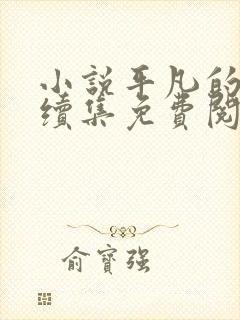 小説平凡的
續集免費閱
俞寶強